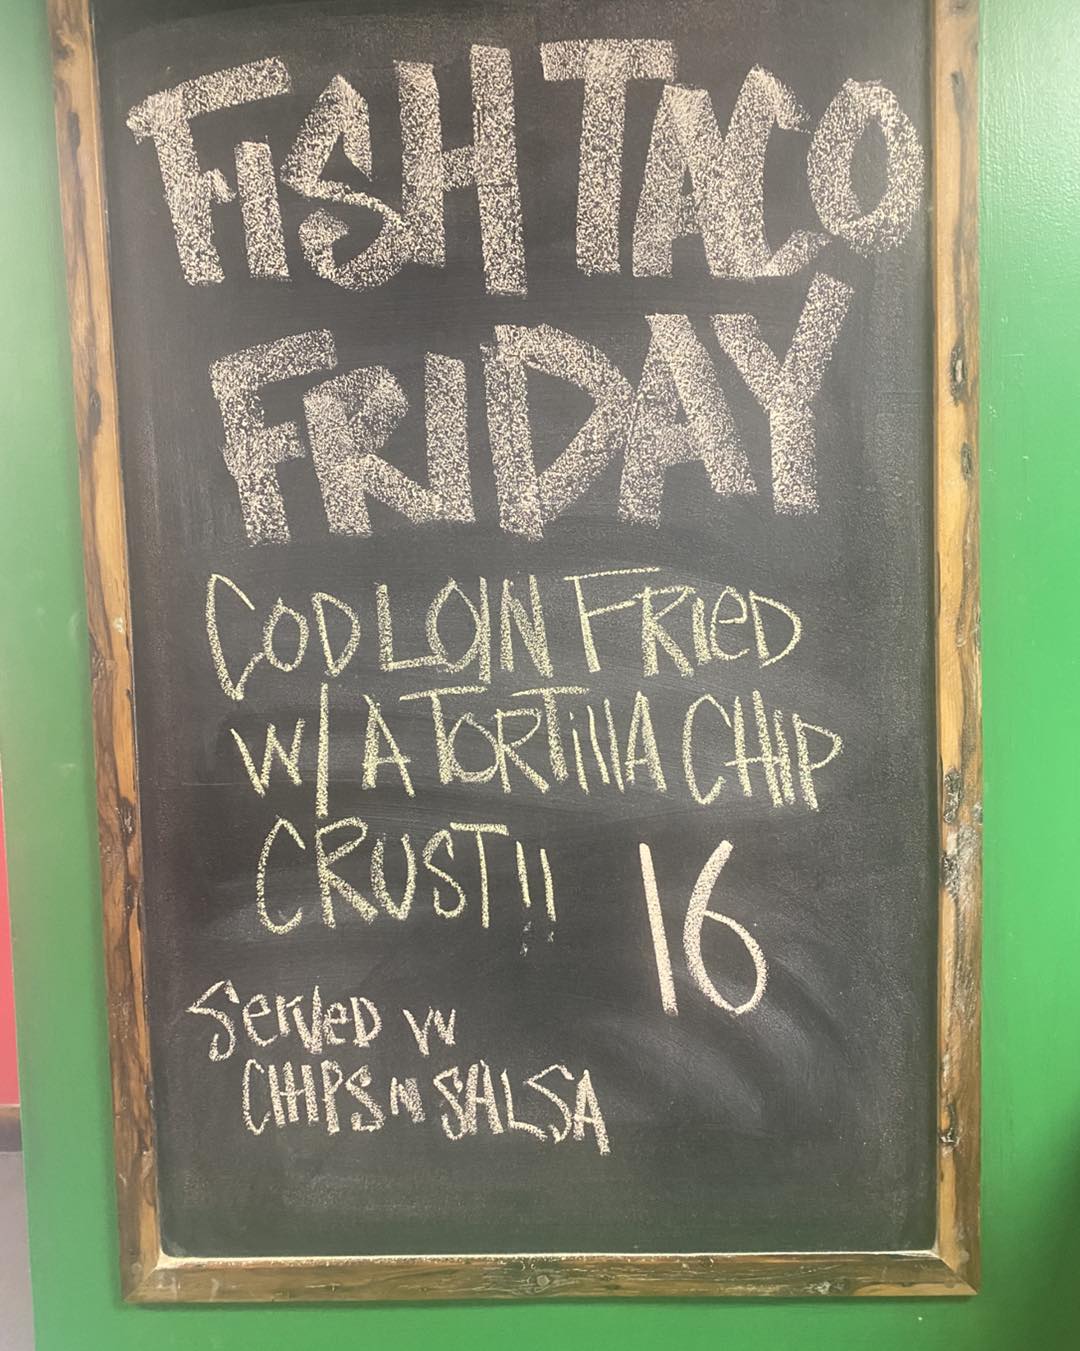 FISH TACO
FRIDAY
COD LOIN FRIED
W/ A TORTillA CHIP
CRUST!!
16
Served W
CHIPS N SALSA